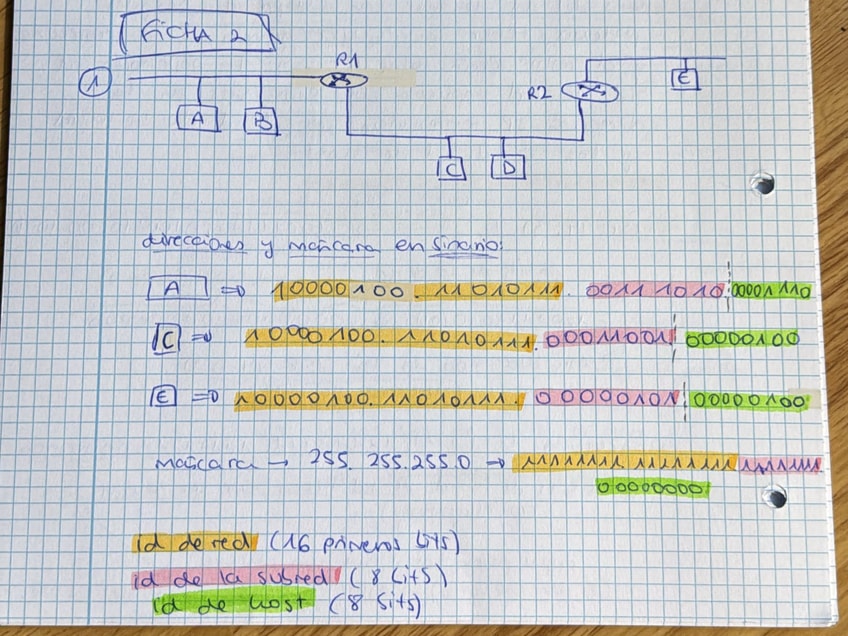 FICHA 2
1
R1
R2
E
A
B
C
D
direcciones y máscara en binario:
A => 10000100. 11010111. 00111010. 00001110
C => 10000100. 11010111. 00011001 00000100
E => 10000100. 11010111. 00000101 00000100
máscara → 255. 255.255.0 → 11111111. 11111111 11111111
00000000
id de red (16 primeros bits)
id de la subred (8 bits)
id de host (8 bits)